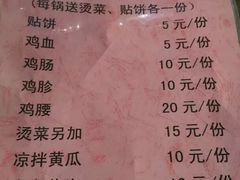 (每锅送烫菜、贴饼各一份)
贴饼 5 元/份
鸡血 5 元/份
鸡肠 10 元/份
鸡胗 10 元/份
鸡腰 20 元/份
烫菜另加 15 元/份
凉拌黄瓜 10 元/份